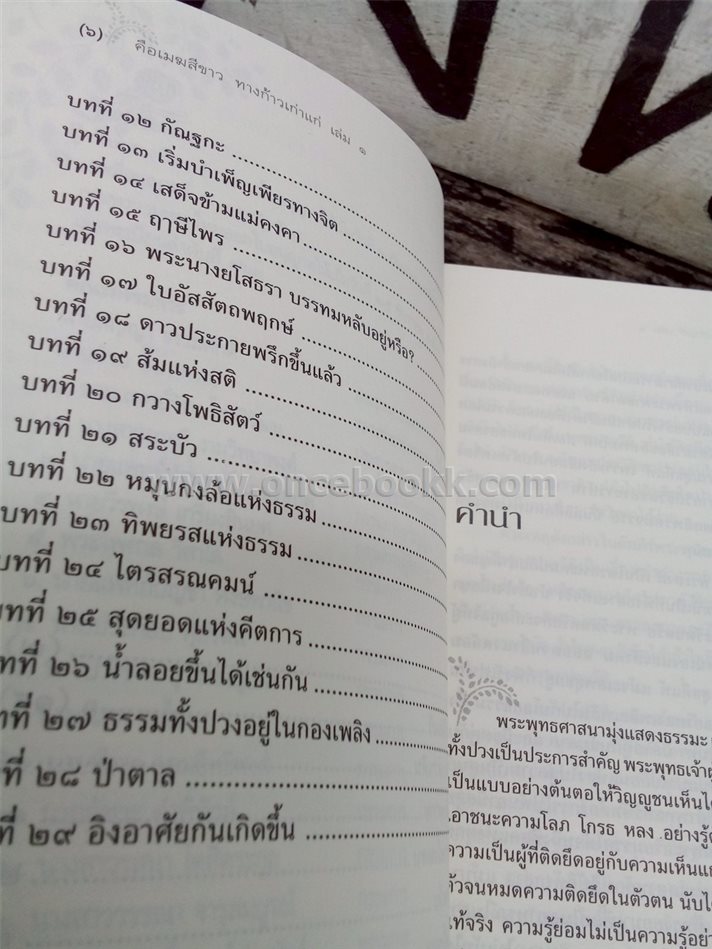 (๖)
คือเมฆสีขาว ทางก้าวเก่าแก่ เล่ม ๑
บทที่ ๑๒ กัณฐกะ
บทที่ ๑๓ เริ่มบำเพ็ญเพียรทางจิต
บทที่ ๑๔ เสด็จข้ามแม่คงคา
บทที่ ๑๕ ฤาษีไพร
บทที่ ๑๖ พระนางยโสธรา บรรทมหลับอยู่หรือ?
บทที่ ๑๗ ใบอัสสัตถพฤกษ์
บทที่ ๑๘ ดาวประกายพรึกขึ้นแล้ว
บทที่ ๑๙ ส้มแห่งสติ
บทที่ ๒๐ กวางโพธิสัตว์
บทที่ ๒๑ สระบัว
บทที่ ๒๒ หมุนกงล้อแห่งธรรม
บทที่ ๒๓ ทิพยรสแห่งธรรม
บทที่ ๒๔ ไตรสรณคมน์
บทที่ ๒๕ สุดยอดแห่งคีตการ
ทที่ ๒๖ น้ำลอยขึ้นได้เช่นกัน
ที่ ๒๗ ธรรมทั้งปวงอยู่ในกองเพลิง
ที่ ๒๘ ป่าตาล
ที่ ๒๙ อิงอาศัยกันเกิดขึ้น
www.oncebookk.com
คำนำ
พระพุทธศาสนามุ่งแสดงธรรมะ
ทั้งปวงเป็นประการสำคัญ พระพุทธเจ้า
เป็นแบบอย่างต้นตอให้วิญญูชนเห็น
เอาชนะความโลภ โกรธ หลง อย่างรู้
ความเป็นผู้ที่ติดยึดอยู่กับความเห็น
จนหมดความติดยึดในตัวตน
แท้จริง ความรู้ย่อมไม่เป็นความรู้